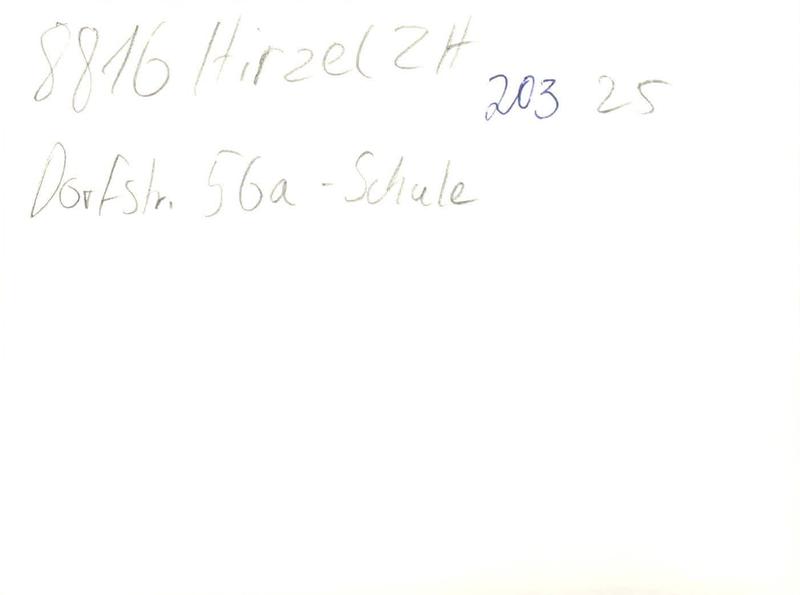 8816 Hirzel ZH
203 25
Dorfstr. 56a - Schule